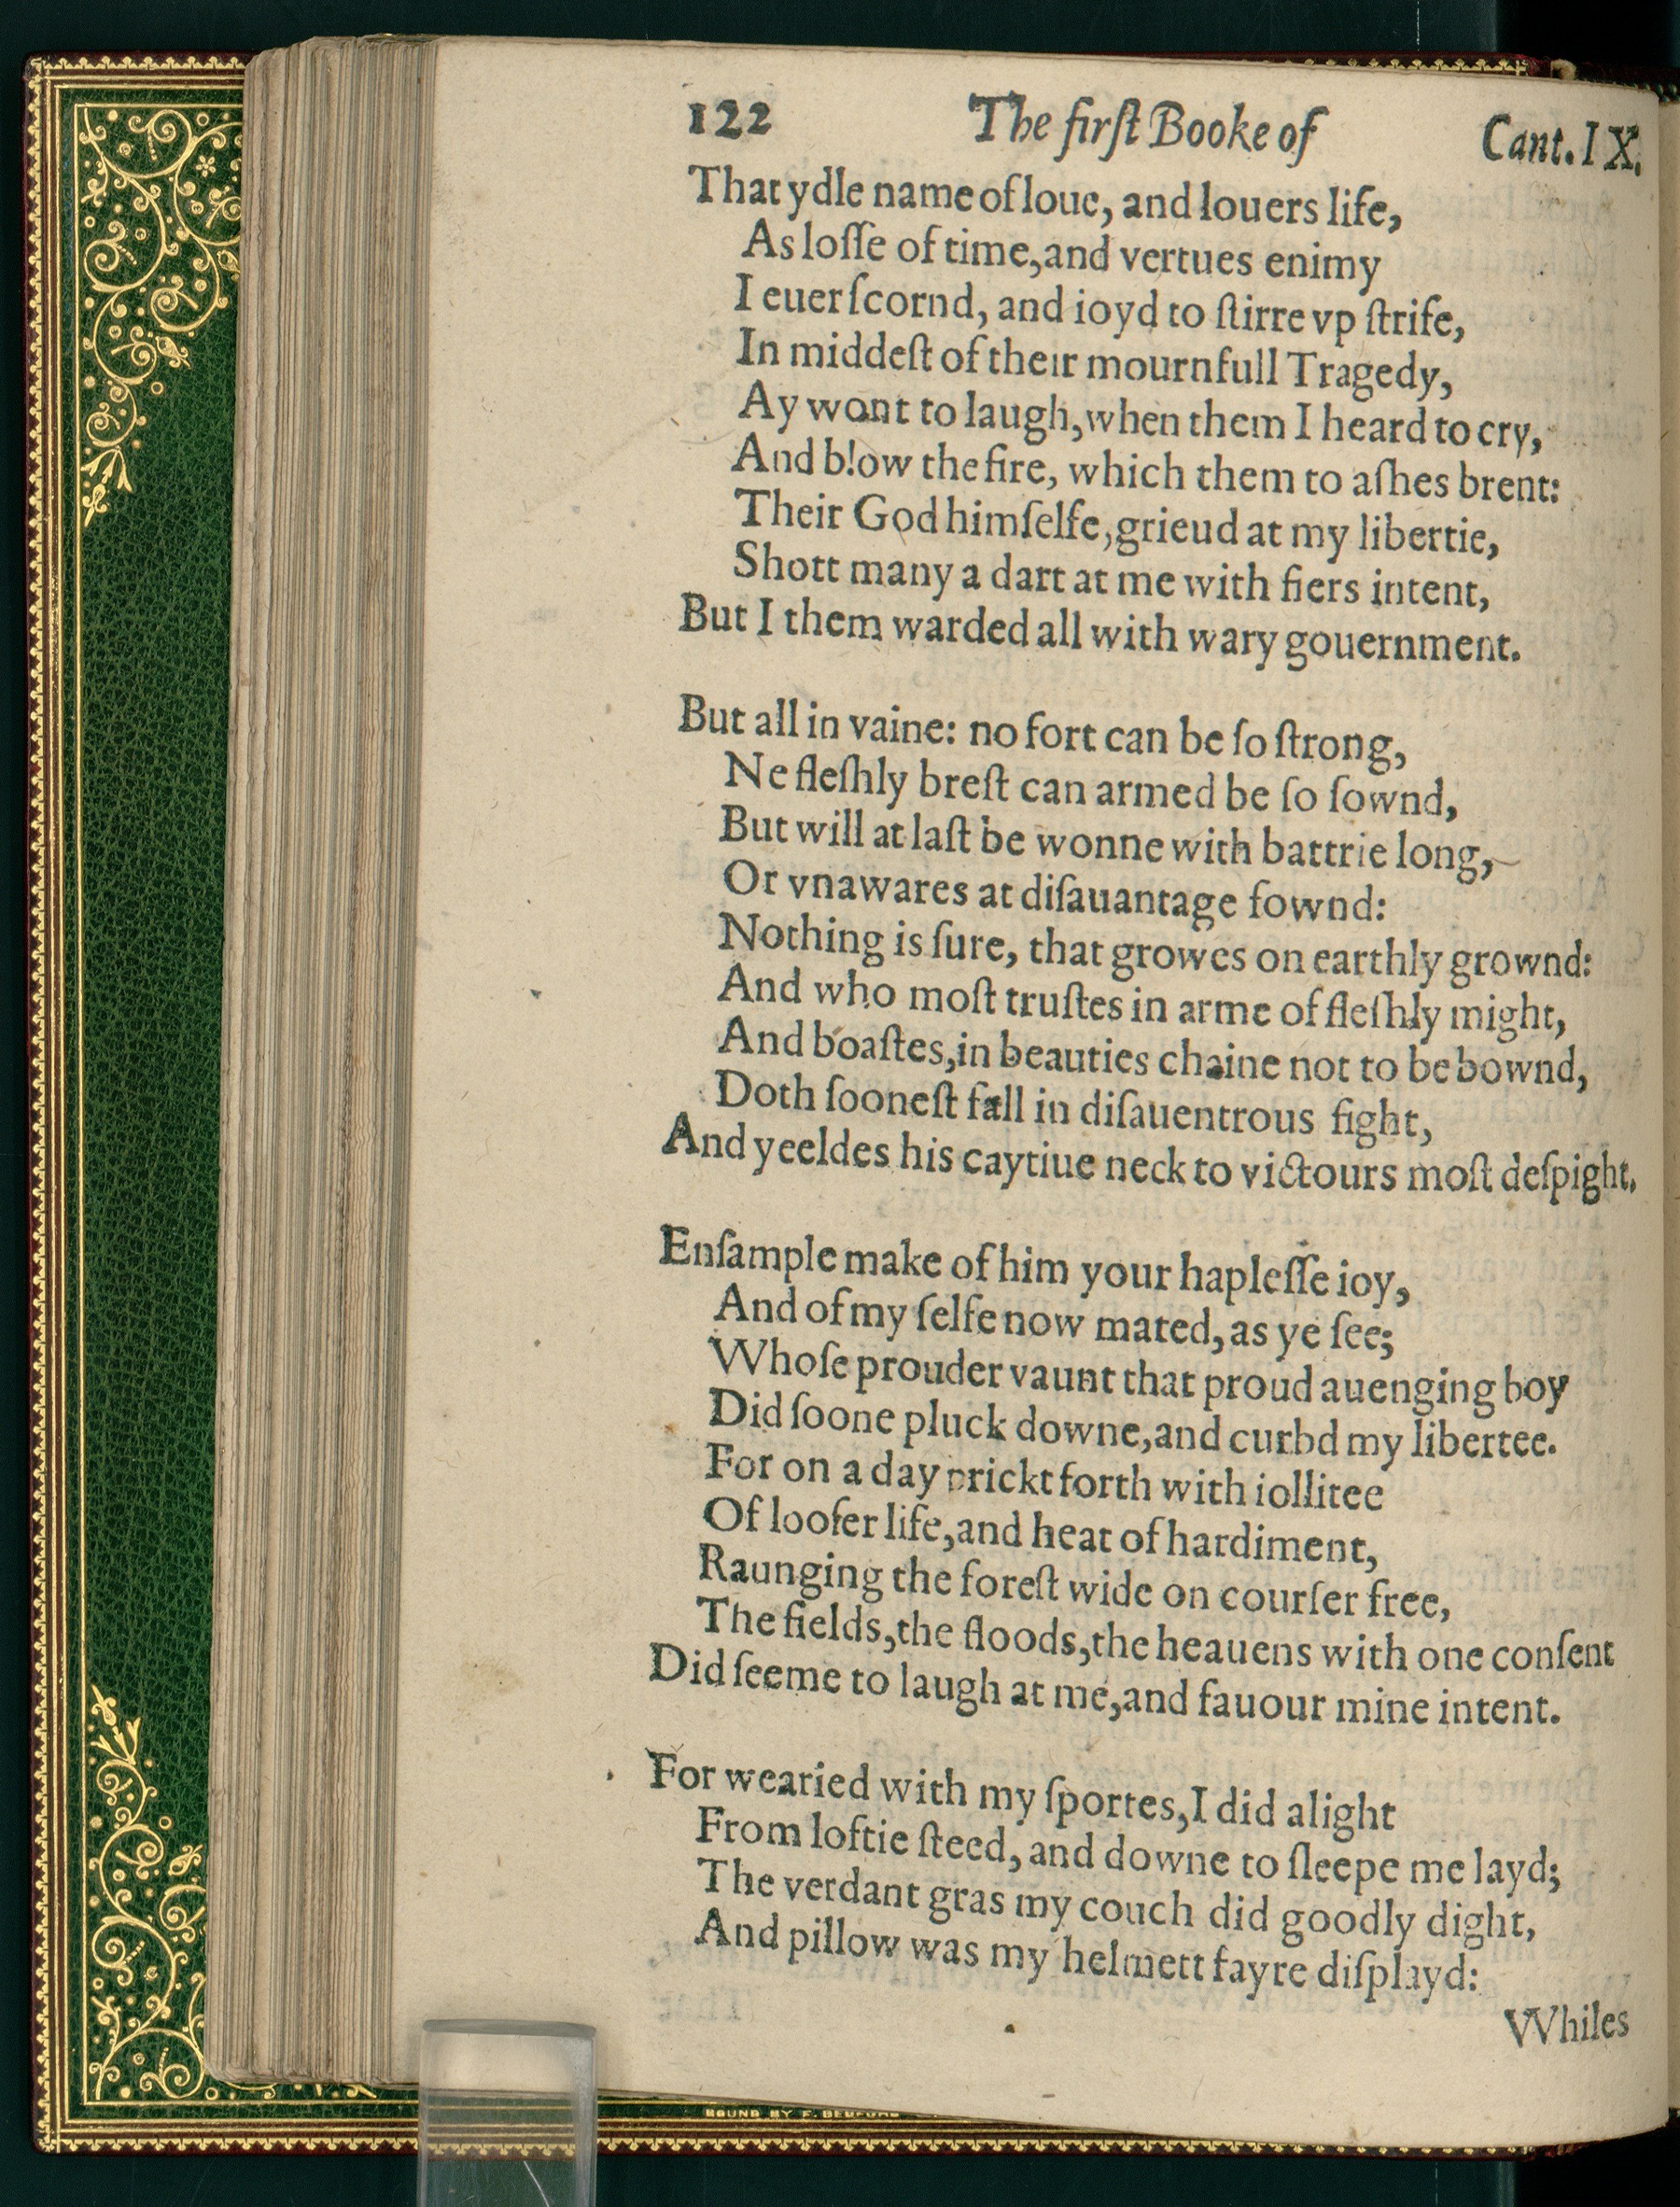 122 The firſt Booke of Cant. IX.
That ydle name of loue, and louers life,
As loſſe of time, and vertues enimy
I euer ſcornd, and ioyd to ſtirre vp ſtrife,
In middeſt of their mournfull Tragedy,
Ay wont to laugh, when them I heard to cry,
And blow the fire, which them to aſhes brent:
Their God himſelfe, grieud at my libertie,
Shott many a dart at me with fiers intent,
But I them warded all with wary gouernment.
But all in vaine: no fort can be ſo ſtrong,
Ne fleſhly breſt can armed be ſo ſownd,
But will at laſt be wonne with battrie long,
Or vnawares at diſauantage fownd:
Nothing is ſure, that growes on earthly grownd:
And who moſt truſtes in arme of fleſhly might,
And boaſtes, in beauties chaine not to be bownd,
Doth ſooneſt fall in diſauentrous fight,
And yeeldes his caytiue neck to victours moſt deſpight.
Enſample make of him your hapleſſe ioy,
And of my ſelfe now mated, as ye ſee;
Whoſe prouder vaunt that proud auenging boy
Did ſoone pluck downe, and curbd my libertee.
For on a day prickt forth with iollitee
Of looſer life, and heat of hardiment,
Raunging the foreſt wide on courſer free,
The fields, the floods, the heauens with one conſent
Did ſeeme to laugh at me, and fauour mine intent.
For wearied with my ſportes, I did alight
From loftie ſteed, and downe to ſleepe me layd;
The verdant gras my couch did goodly dight,
And pillow was my helmett fayre diſplayd:
VVhiles
BOUND BY F. BEDFORD